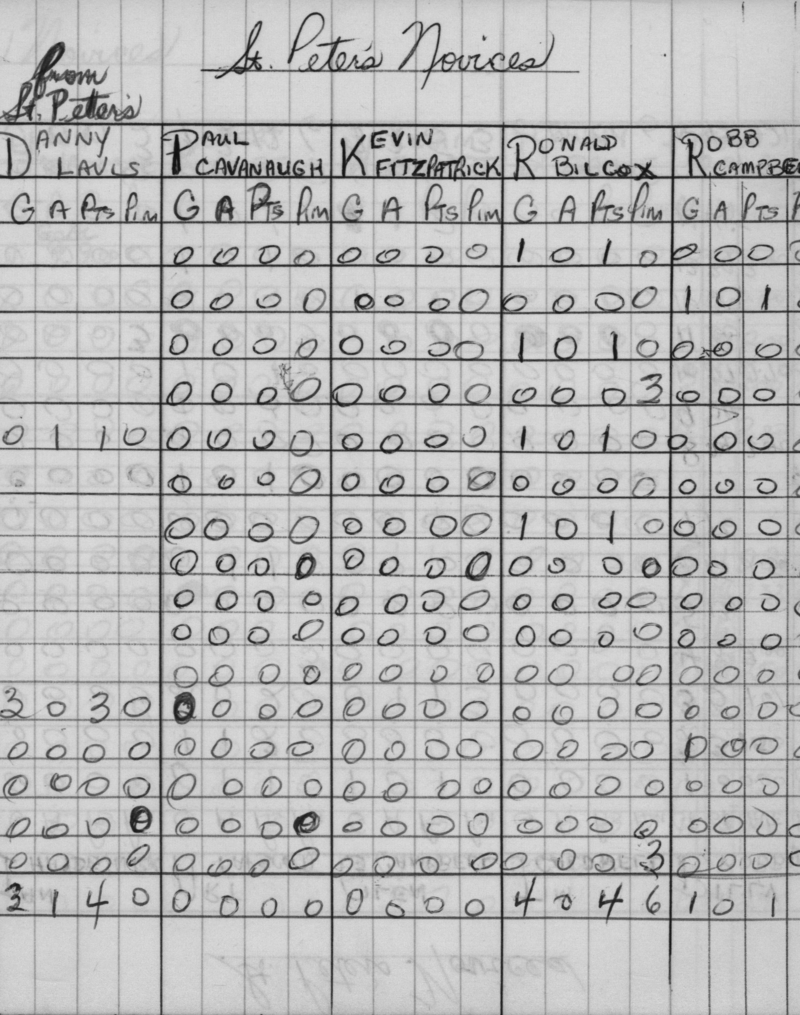 St. Peter's Novices
from
St. Peter's
DANNY LAVLS PAUL CAVANAUGH KEVIN FITZPATRICK RONALD BILCOX ROBB CAMPBE
G A Pts Pim G A Pts Pim G A Pts Pim G A Pts Pim G A Pts P
0 0 0 0 0 0 0 0 1 0 1 0 0 0 0
0 0 0 0 0 0 0 0 0 0 0 0 1 0 1
0 0 0 0 0 0 0 0 1 0 1 0 0 0 0
0 0 0 0 0 0 0 0 0 0 0 3 0 0 0
0 1 1 0 0 0 0 0 0 0 0 0 1 0 1 0 0 0 0
0 0 0 0 0 0 0 0 0 0 0 0 0 0 0
0 0 0 0 0 0 0 0 1 0 1 0 0 0 0
0 0 0 0 0 0 0 0 0 0 0 0 0 0 0
0 0 0 0 0 0 0 0 0 0 0 0 0 0 0
0 0 0 0 0 0 0 0 0 0 0 0 0 0 0
0 0 0 0 0 0 0 0 0 0 0 0 0 0 0
3 0 3 0 0 0 0 0 0 0 0 0 0 0 0 0 0 0 0
0 0 0 0 0 0 0 0 0 0 0 0 0 0 0 0 0 0 0
0 0 0 0 0 0 0 0 0 0 0 0 0 0 0 0 0 0 0
0 0 0 0 0 0 0 0 0 0 0 0 0 0 0 0 0 0 0
0 0 0 0 0 0 0 0 0 0 0 0 0 0 0 3 0 0 0
3 1 4 0 0 0 0 0 0 0 0 0 4 0 4 6 1 0 1